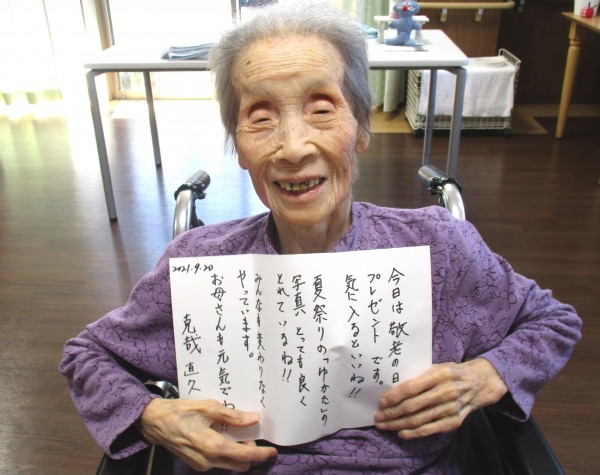 今日は敬老の日
プレゼントです。
気に入るといいね!!
夏祭りの「ゆかた」の
写真、とっても良く
とれているね!!
みんなも変わりなく
やっています。
お母さんも元気でね!!
克哉 直久
2021.9.20